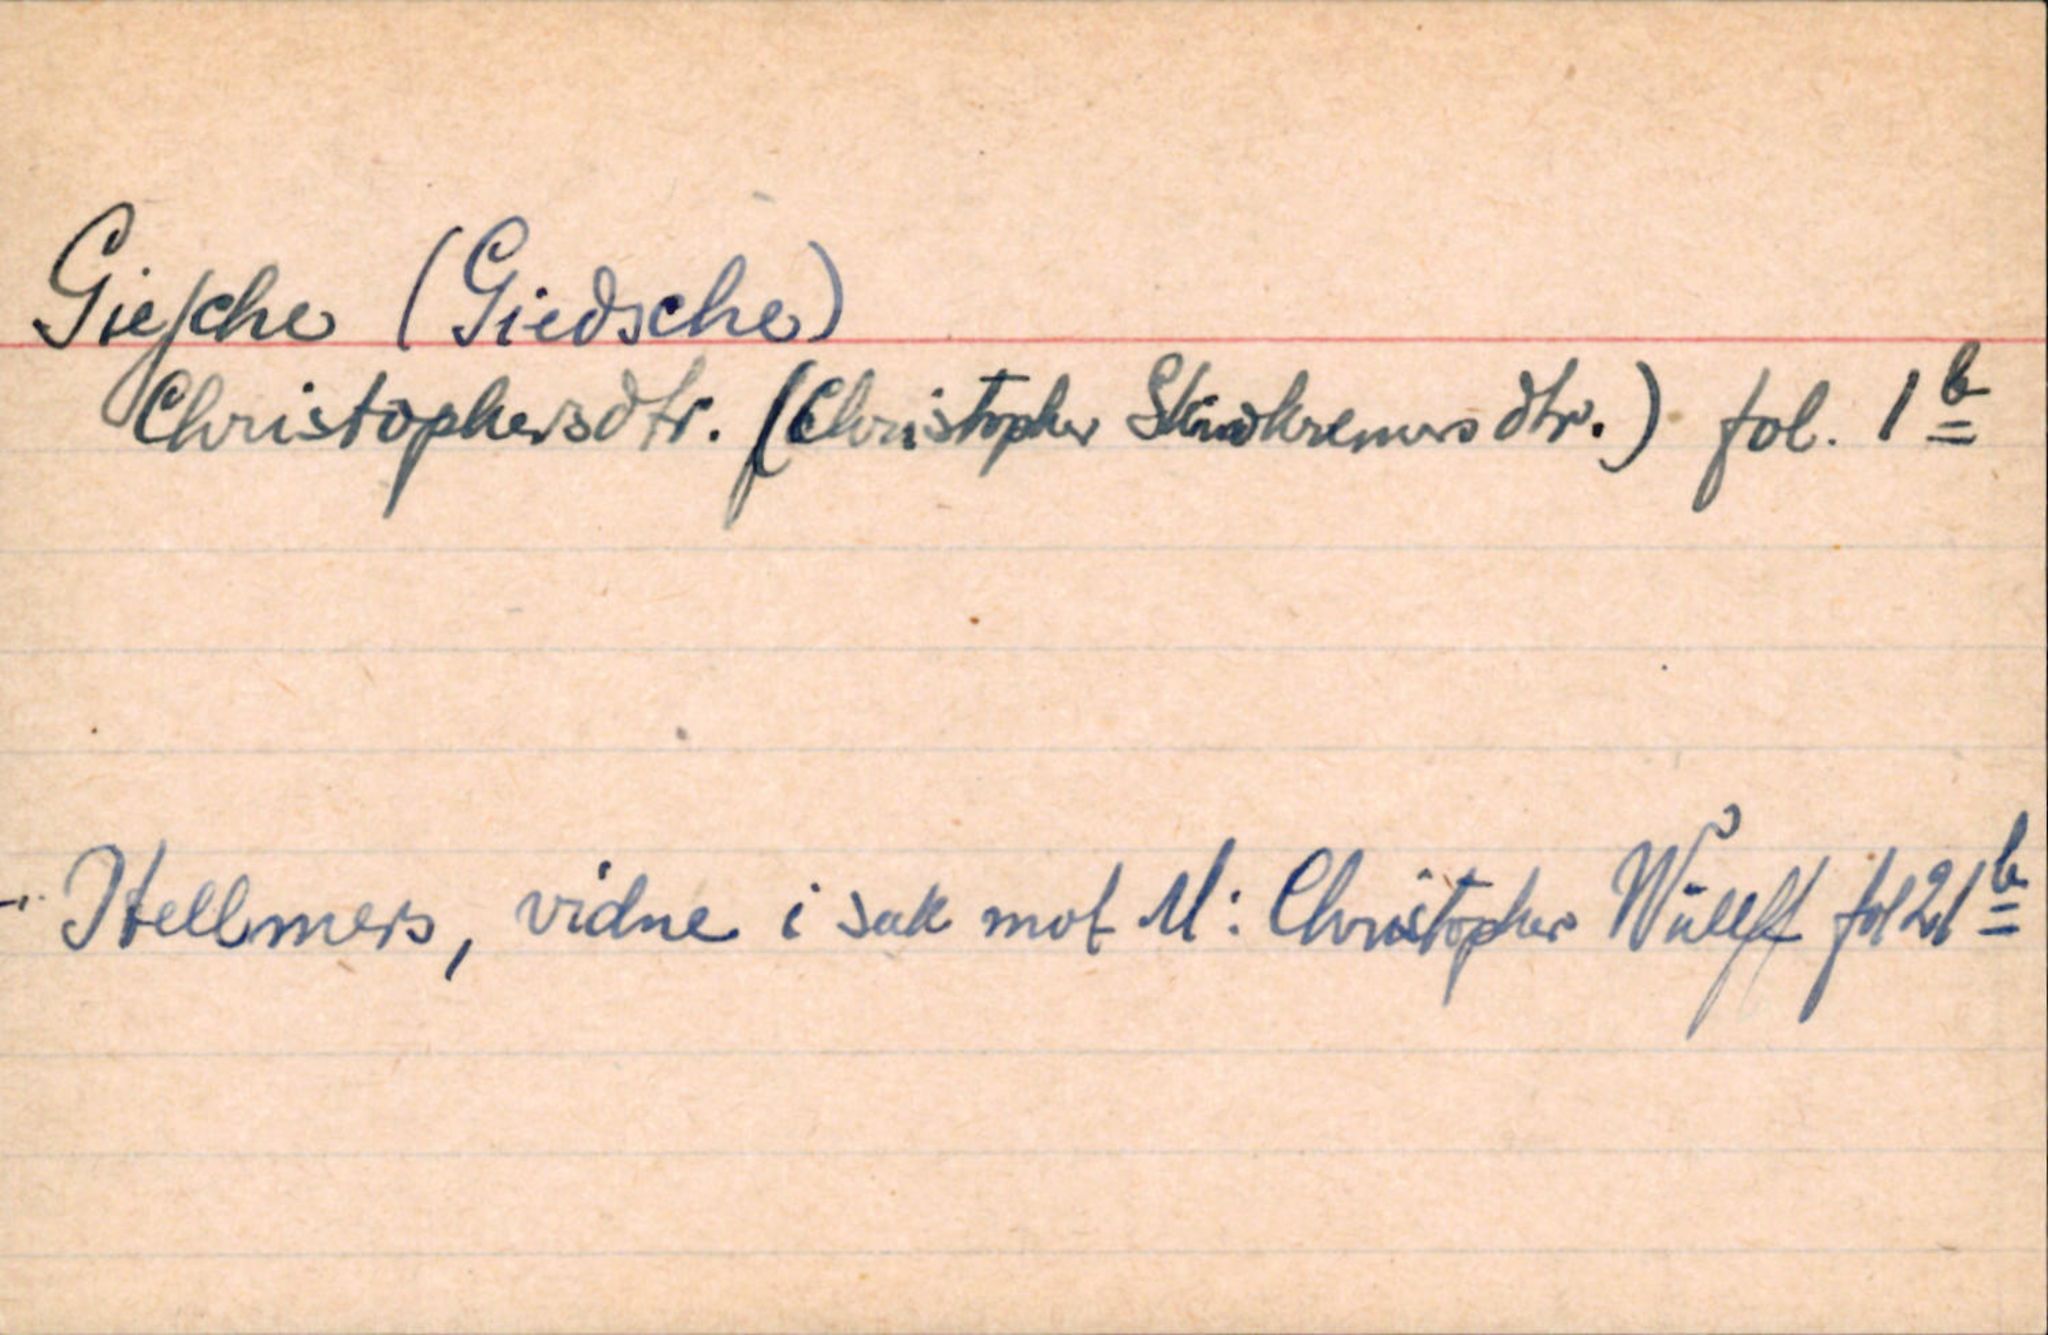 Gieſche (Giedsche)
Christophersdtr. (Christopher Skredkremers dtr.) fol. 1 b
-" Hellmers, vidne i sak mot M: Christopher Wulff fol 21 b